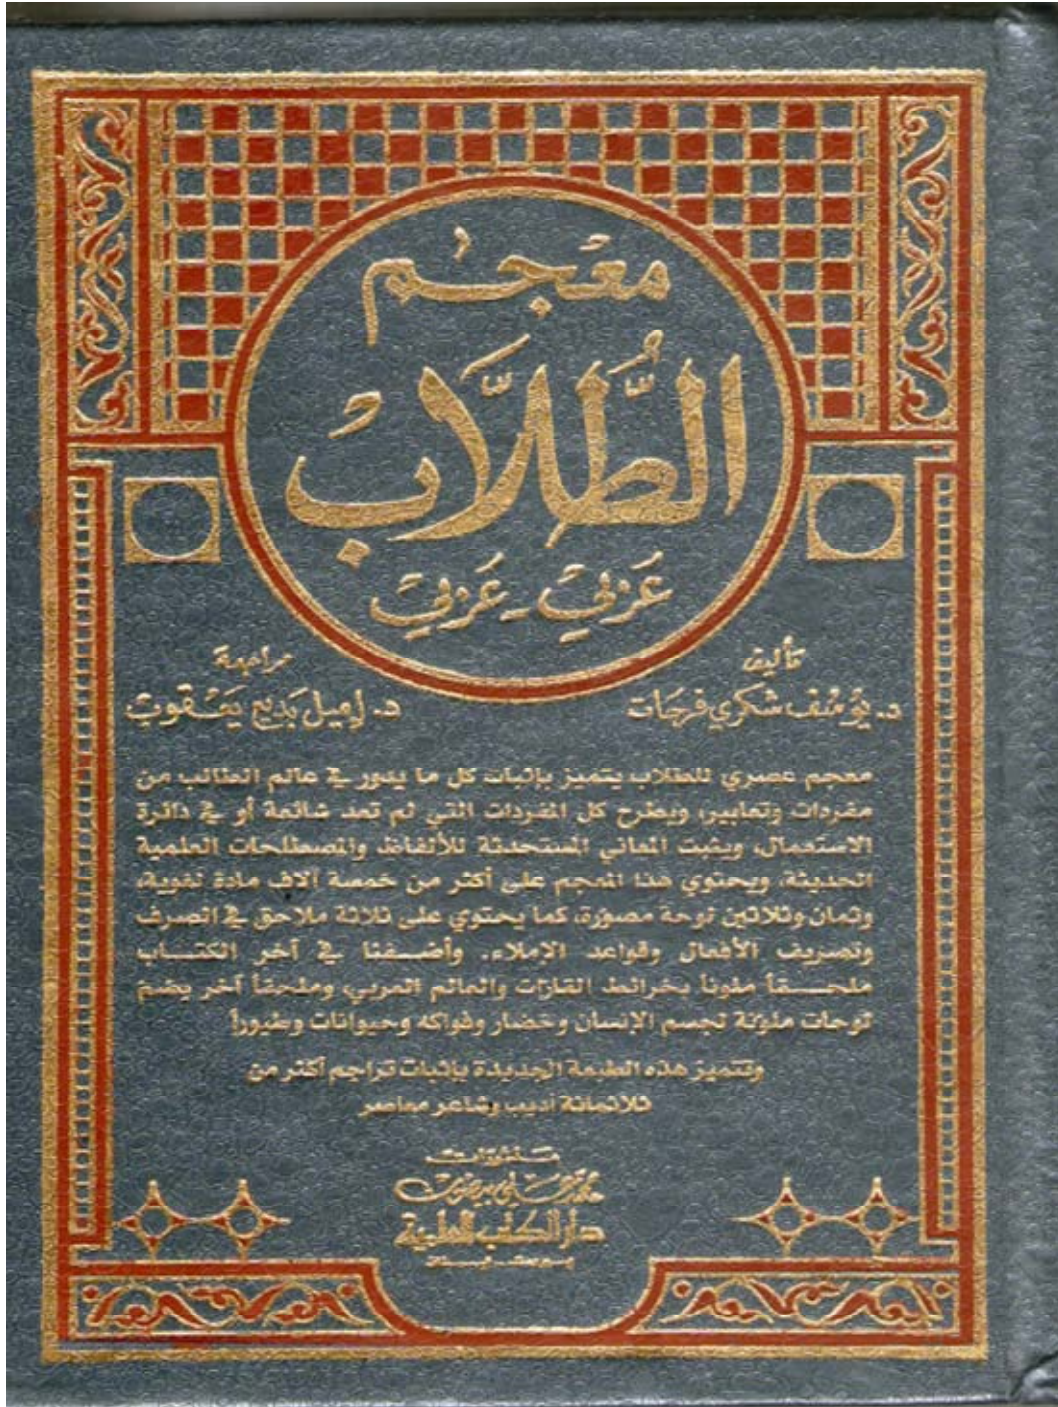 معجم
الطُّلَّاب
عَرَبي - عَرَبي
تأليف
د. يوسف شكري فرحات
مراجعة
د. إميل بديع يعقوب
معجم عصري للطلاب يتميز بإثبات كل ما يدور في عالم الطالب من
مفردات وتعابير، ويطرح كل المفردات التي لم تعد شائعة أو في دائرة
الاستعمال، ويثبت المعاني المستحدثة للألفاظ والمصطلحات العلمية
الحديثة، ويحتوي هذا المعجم على أكثر من خمسة آلاف مادة لغوية،
وثمان وثلاثين لوحة مصورة، كما يحتوي على ثلاثة ملاحق في الصرف
وتصريف الأفعال وقواعد الإملاء. وأضفنا في آخر الكتاب
ملحقاً ملوناً بخرائط القارات والعالم العربي، وملحقاً آخر يضم
لوحات ملونة لجسم الإنسان وخضار وفواكه وحيوانات وطيوراً
وتتميز هذه الطبعة الجديدة بإثبات تراجم أكثر من
ثلاثمائة أديب وشاعر معاصر
منشورات
محمد علي بيضون
دار الكتب العلمية
بيروت - لبنان